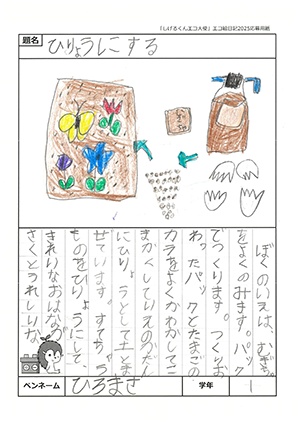 「しげるくんエコ大使」エコ絵日記2025応募用紙
題名
ひりょうにする
ぼくのいえは、むぎち
をよくのみます。パック
でつくります。つくりお
わったパックとたまごの
カラをよくかわかしてこ
まかくしていえのかだん
にひりょうとして土とま
ぜています。すてちゃう
ものをひりょうにして、
きれいなおはなが
さくとうれしいな。
ペンネーム
ひろまさ
学年
1